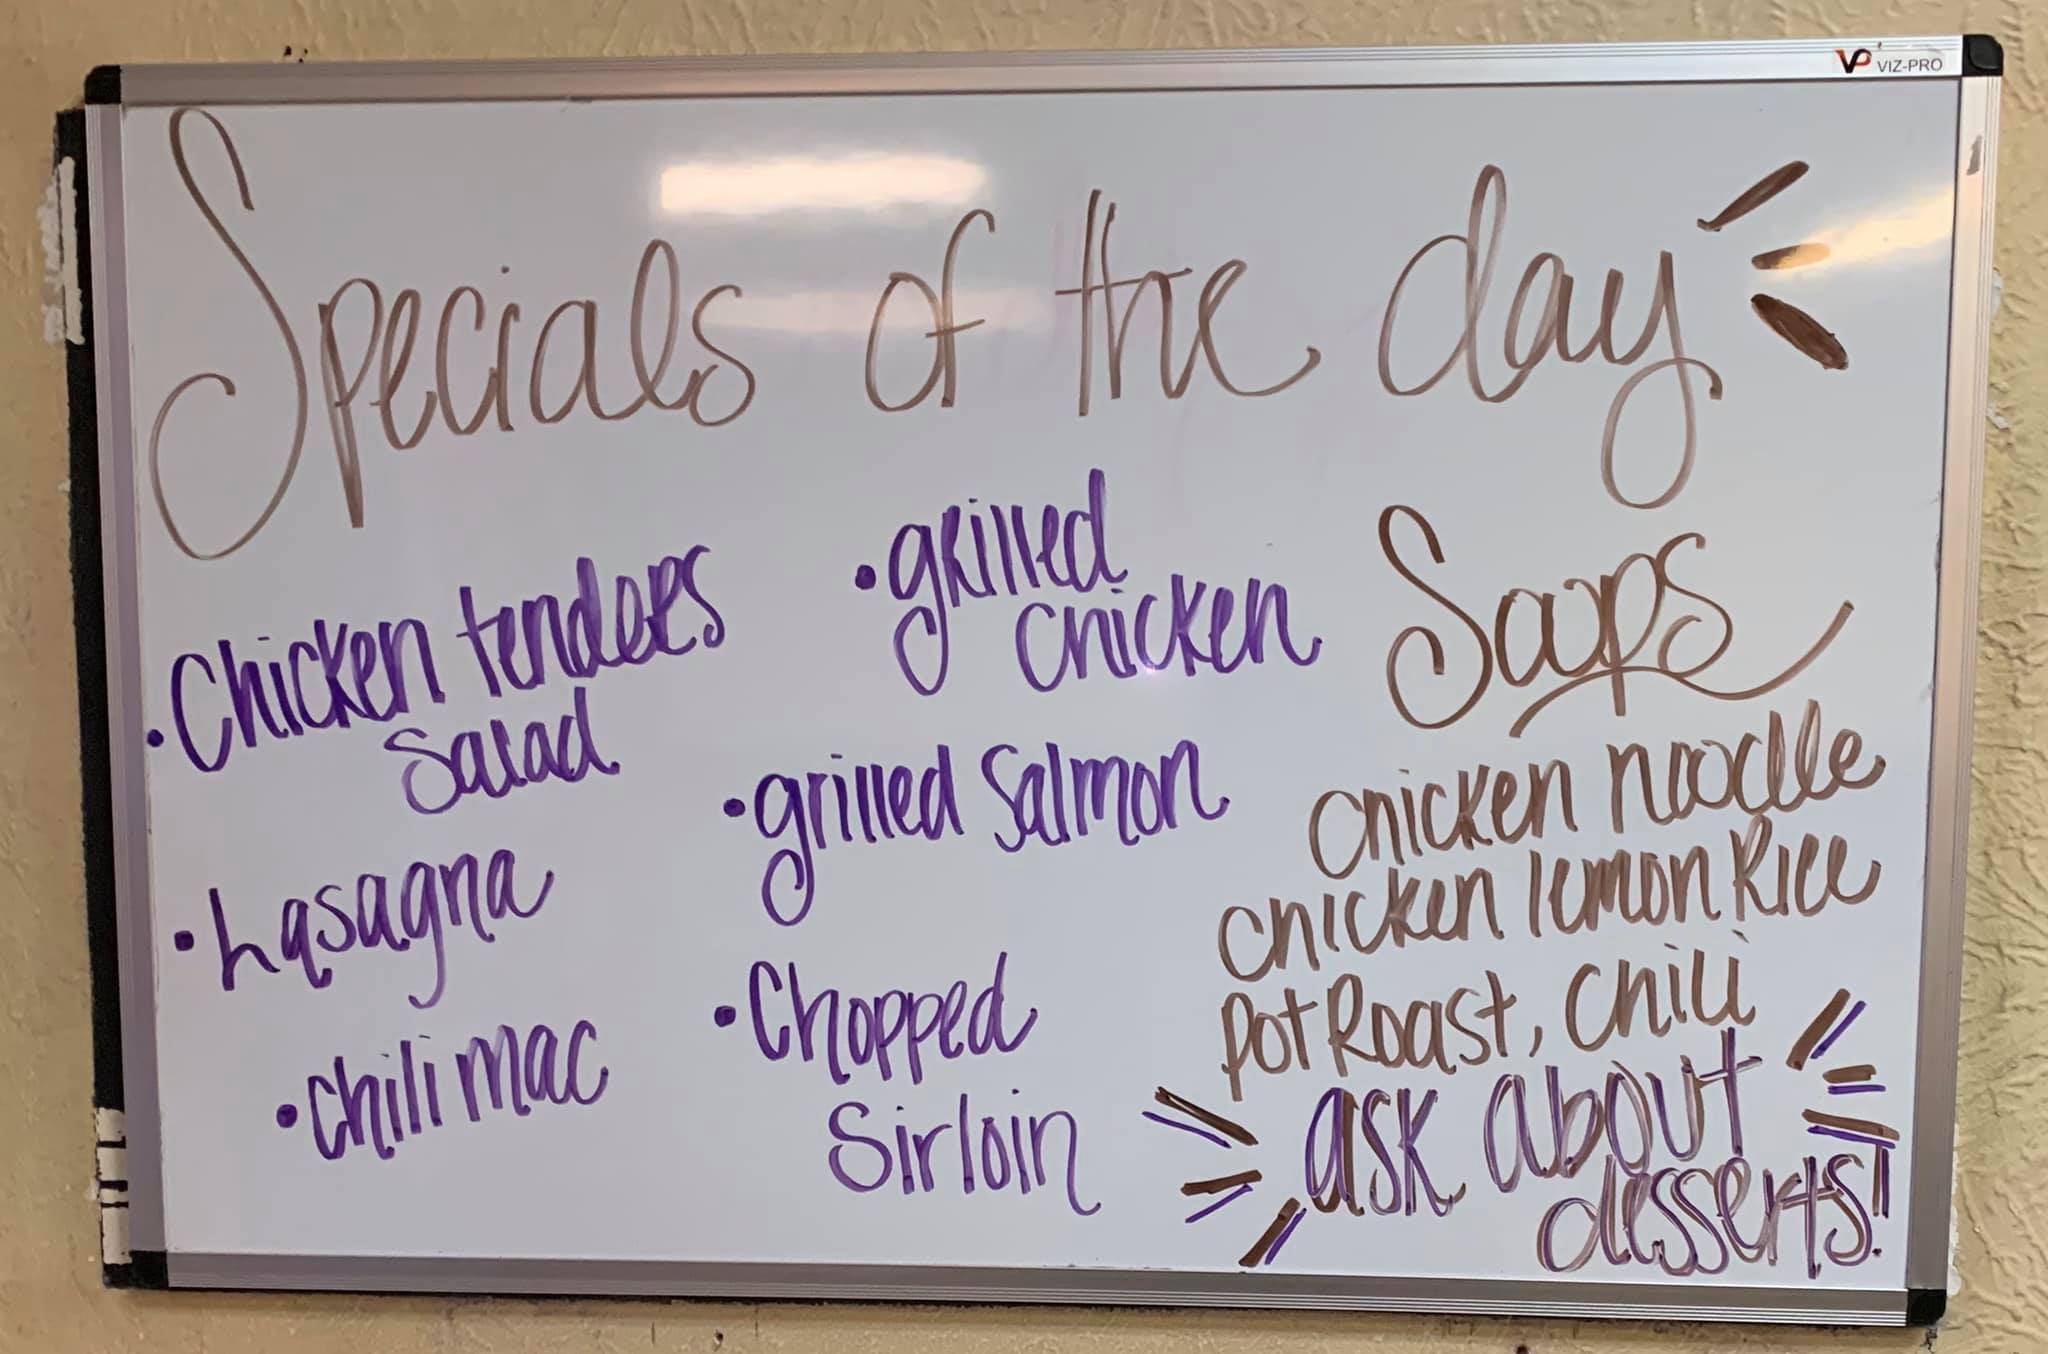 VP VIZ-PRO
Specials of the day
• Chicken tenders
salad
• Lasagna
• chili mac
• grilled
chicken
• grilled salmon
• Chopped
Sirloin
Soups
chicken noodle
chicken lemon Rice
pot Roast, chili
ask about
desserts!